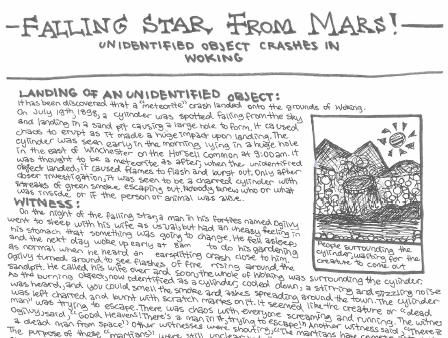 -FALLING STAR FROM MARS!-
UNIDENTIFIED OBJECT CRASHES IN
WOKING
LANDING OF AN UNIDENTIFIED OBJECT:
It has been discovered that a "meteorite" crash landed onto the grounds of Woking.
On July 19th, 1898, a cylinder was spotted falling from the sky
and landing in a sand pit causing a large hole to form. It caused
chaos to erupt as it made a huge impact upon landing. The
cylinder was seen early in the morning, lying in a huge hole
in the east of Winchester on the Horsell Common at 9:00am. It
was thought to be a meteorite as after, when the unidentified
object landed, it caused flames to flash and burst out. Only after
closer investigation, it was seen to be a charred cylinder with
streaks of green smoke escaping out. Nobody knew who or what
was inside, or if the person or animal was alive.
WITNESS:
On the night of the falling star, a man in his forties named Ogilvy
went to sleep with his wife as usual, but had an uneasy feeling in
his stomach that something was going to change. He fell asleep
and the next day woke up early at 8am to do his gardening
as normal when he heard an earsplitting crash close to him.
Ogilvy turned around to see flashes of fire rising around the
sandpit. He called his wife over and soon, the whole of Woking was surrounding the cylinder.
As the burning object, now identified as a cylinder, cooled down; a stirring and sizzling noise
was heard, and you could smell the smoke and ashes spreading around the town. The cylinder
was left charred and burnt with scratch marks on it. It seemed like the creature or "dead
man" was trying to escape. There was chaos with everyone screaming and running. The witness
Ogilvy, said, "Good Heavens! There's a man in it, trying to escape!" Another witness said, "There's
a dead man from space! Other witnesses were shouting, "The martians have come
The purpose of these "martians" were still unclear
People surrounding the
cylinder, waiting for the
creature to come out